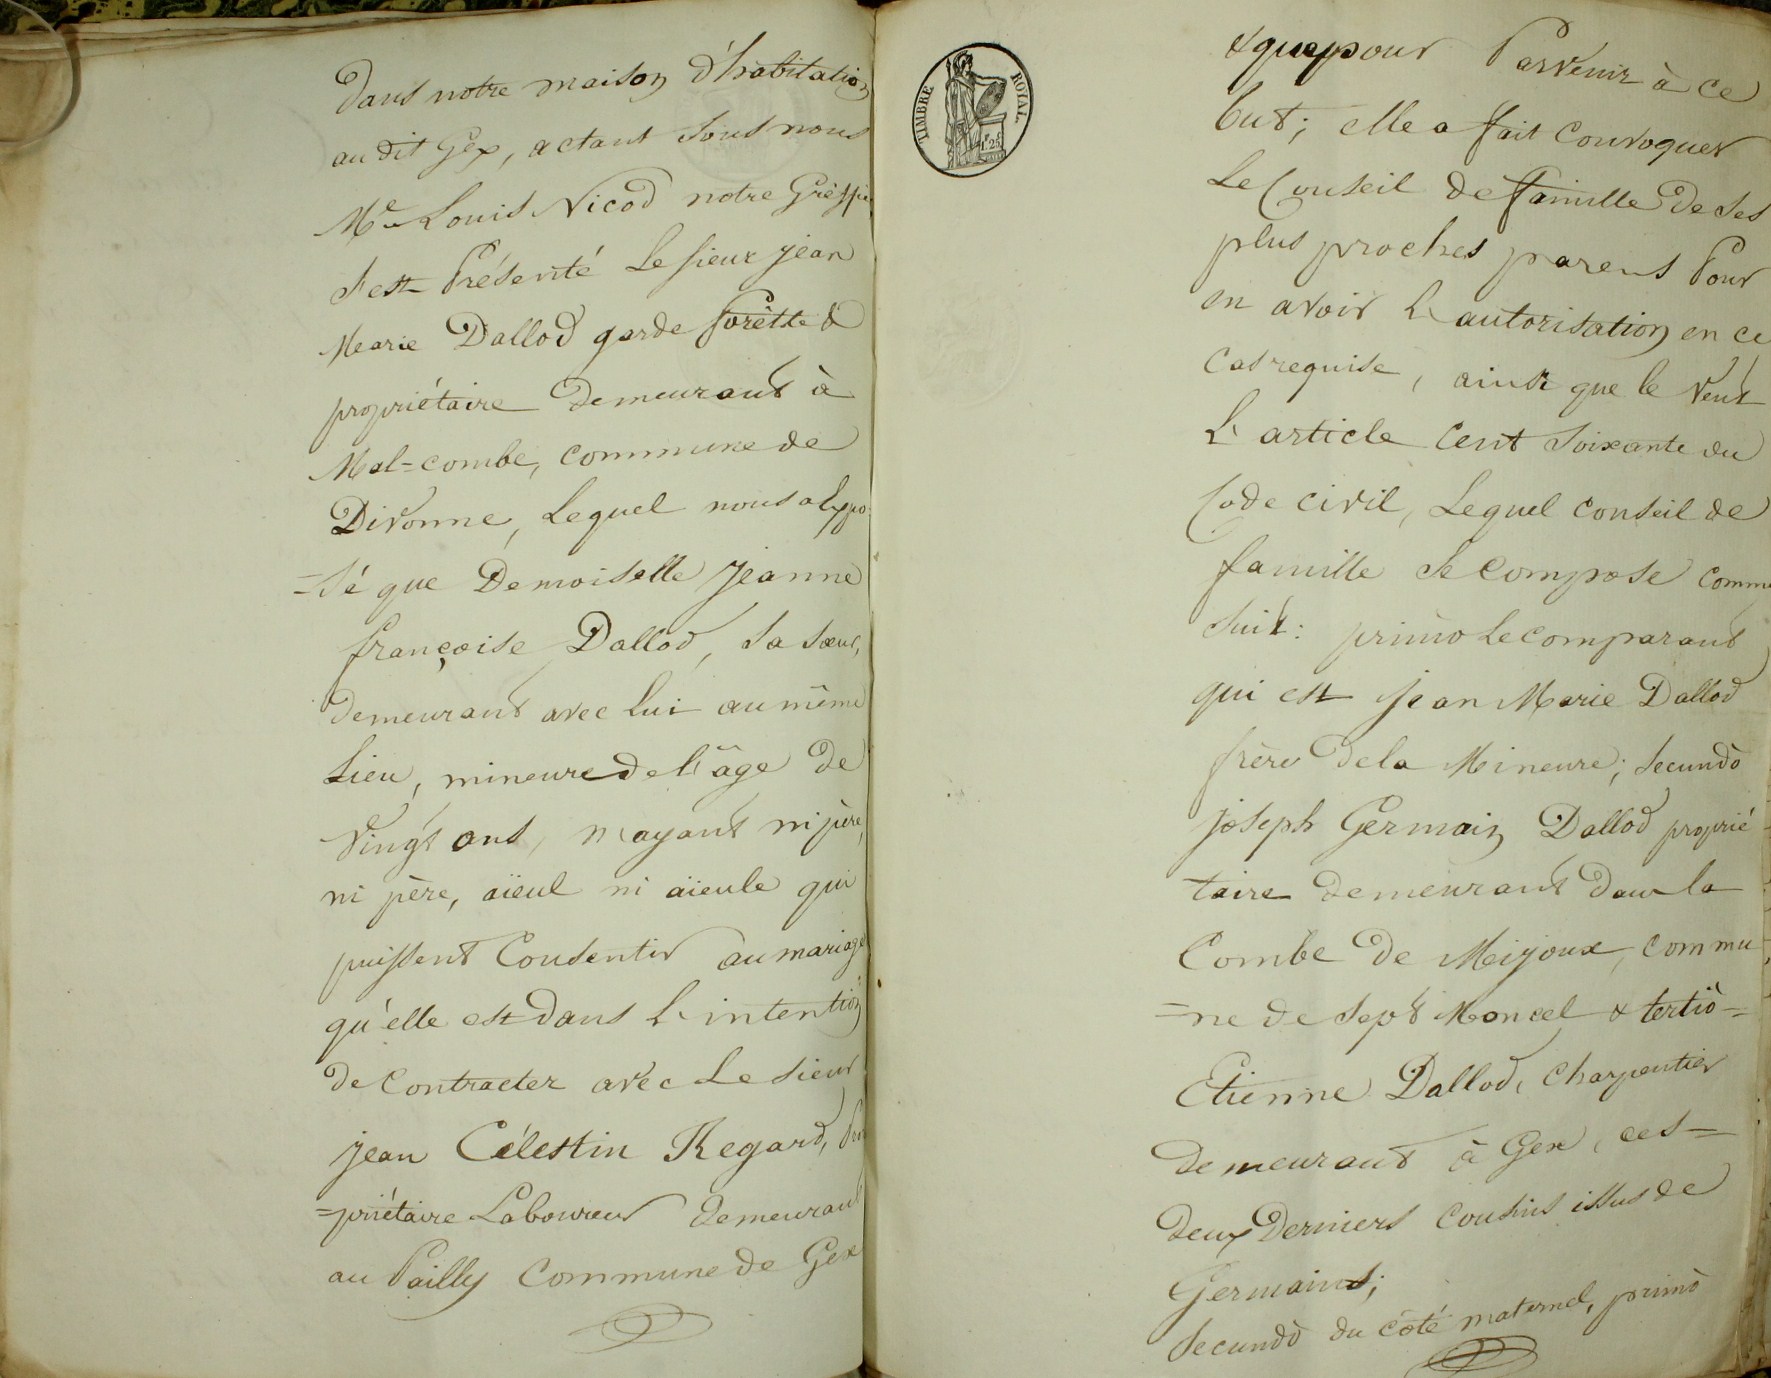 Dans notre maison d'habitation
au dit Gex, actant sous nous
Me Louis Nicod notre Greffier
s'est Présenté Le sieur jean
Marie Dallod garde forêtte &
propriétaire demeurant à
Mal=combe, commune de
Divonne, Lequel nous a Expo
=sé que Demoiselle jeanne
françoise Dallod, sa sœur,
demeurant avec lui au même
Lieu, mineure de l'âge de
Vingt ans, n'ayant ni père,
ni père, aïeul ni aïeule qui
puissent Consentir au mariage
qu'elle est dans L'intention
de Contracter avec Le sieur
jean Célestin Regard, Pro
=priétaire Laboureur demeurant
au Pailly Commune de Gex
TIMBRE ROYAL
1f 25
& que pour Parvenir à ce
but; elle a fait Convoquer
Le Conseil de famille de ses
plus proches parens Pour
en avoir L'autorisation en ce
Cas requise, ainsi que le Veut
L'article Cent soixante du
Code civil, Lequel conseil de
famille se compose comme
suit: primò Le comparant
qui est jean Marie Dallod
frère de la Mineure; secundò
joseph Germain Dallod proprié
taire demeurant dans la
Combe de Mijoux, commu
=ne de Sept Moncel & tertiò=
Etienne Dallod, Charpentier
demeurant à Gex, ces=
deux Derniers Cousins issus de
Germains;
Secundò du côté maternel, primò